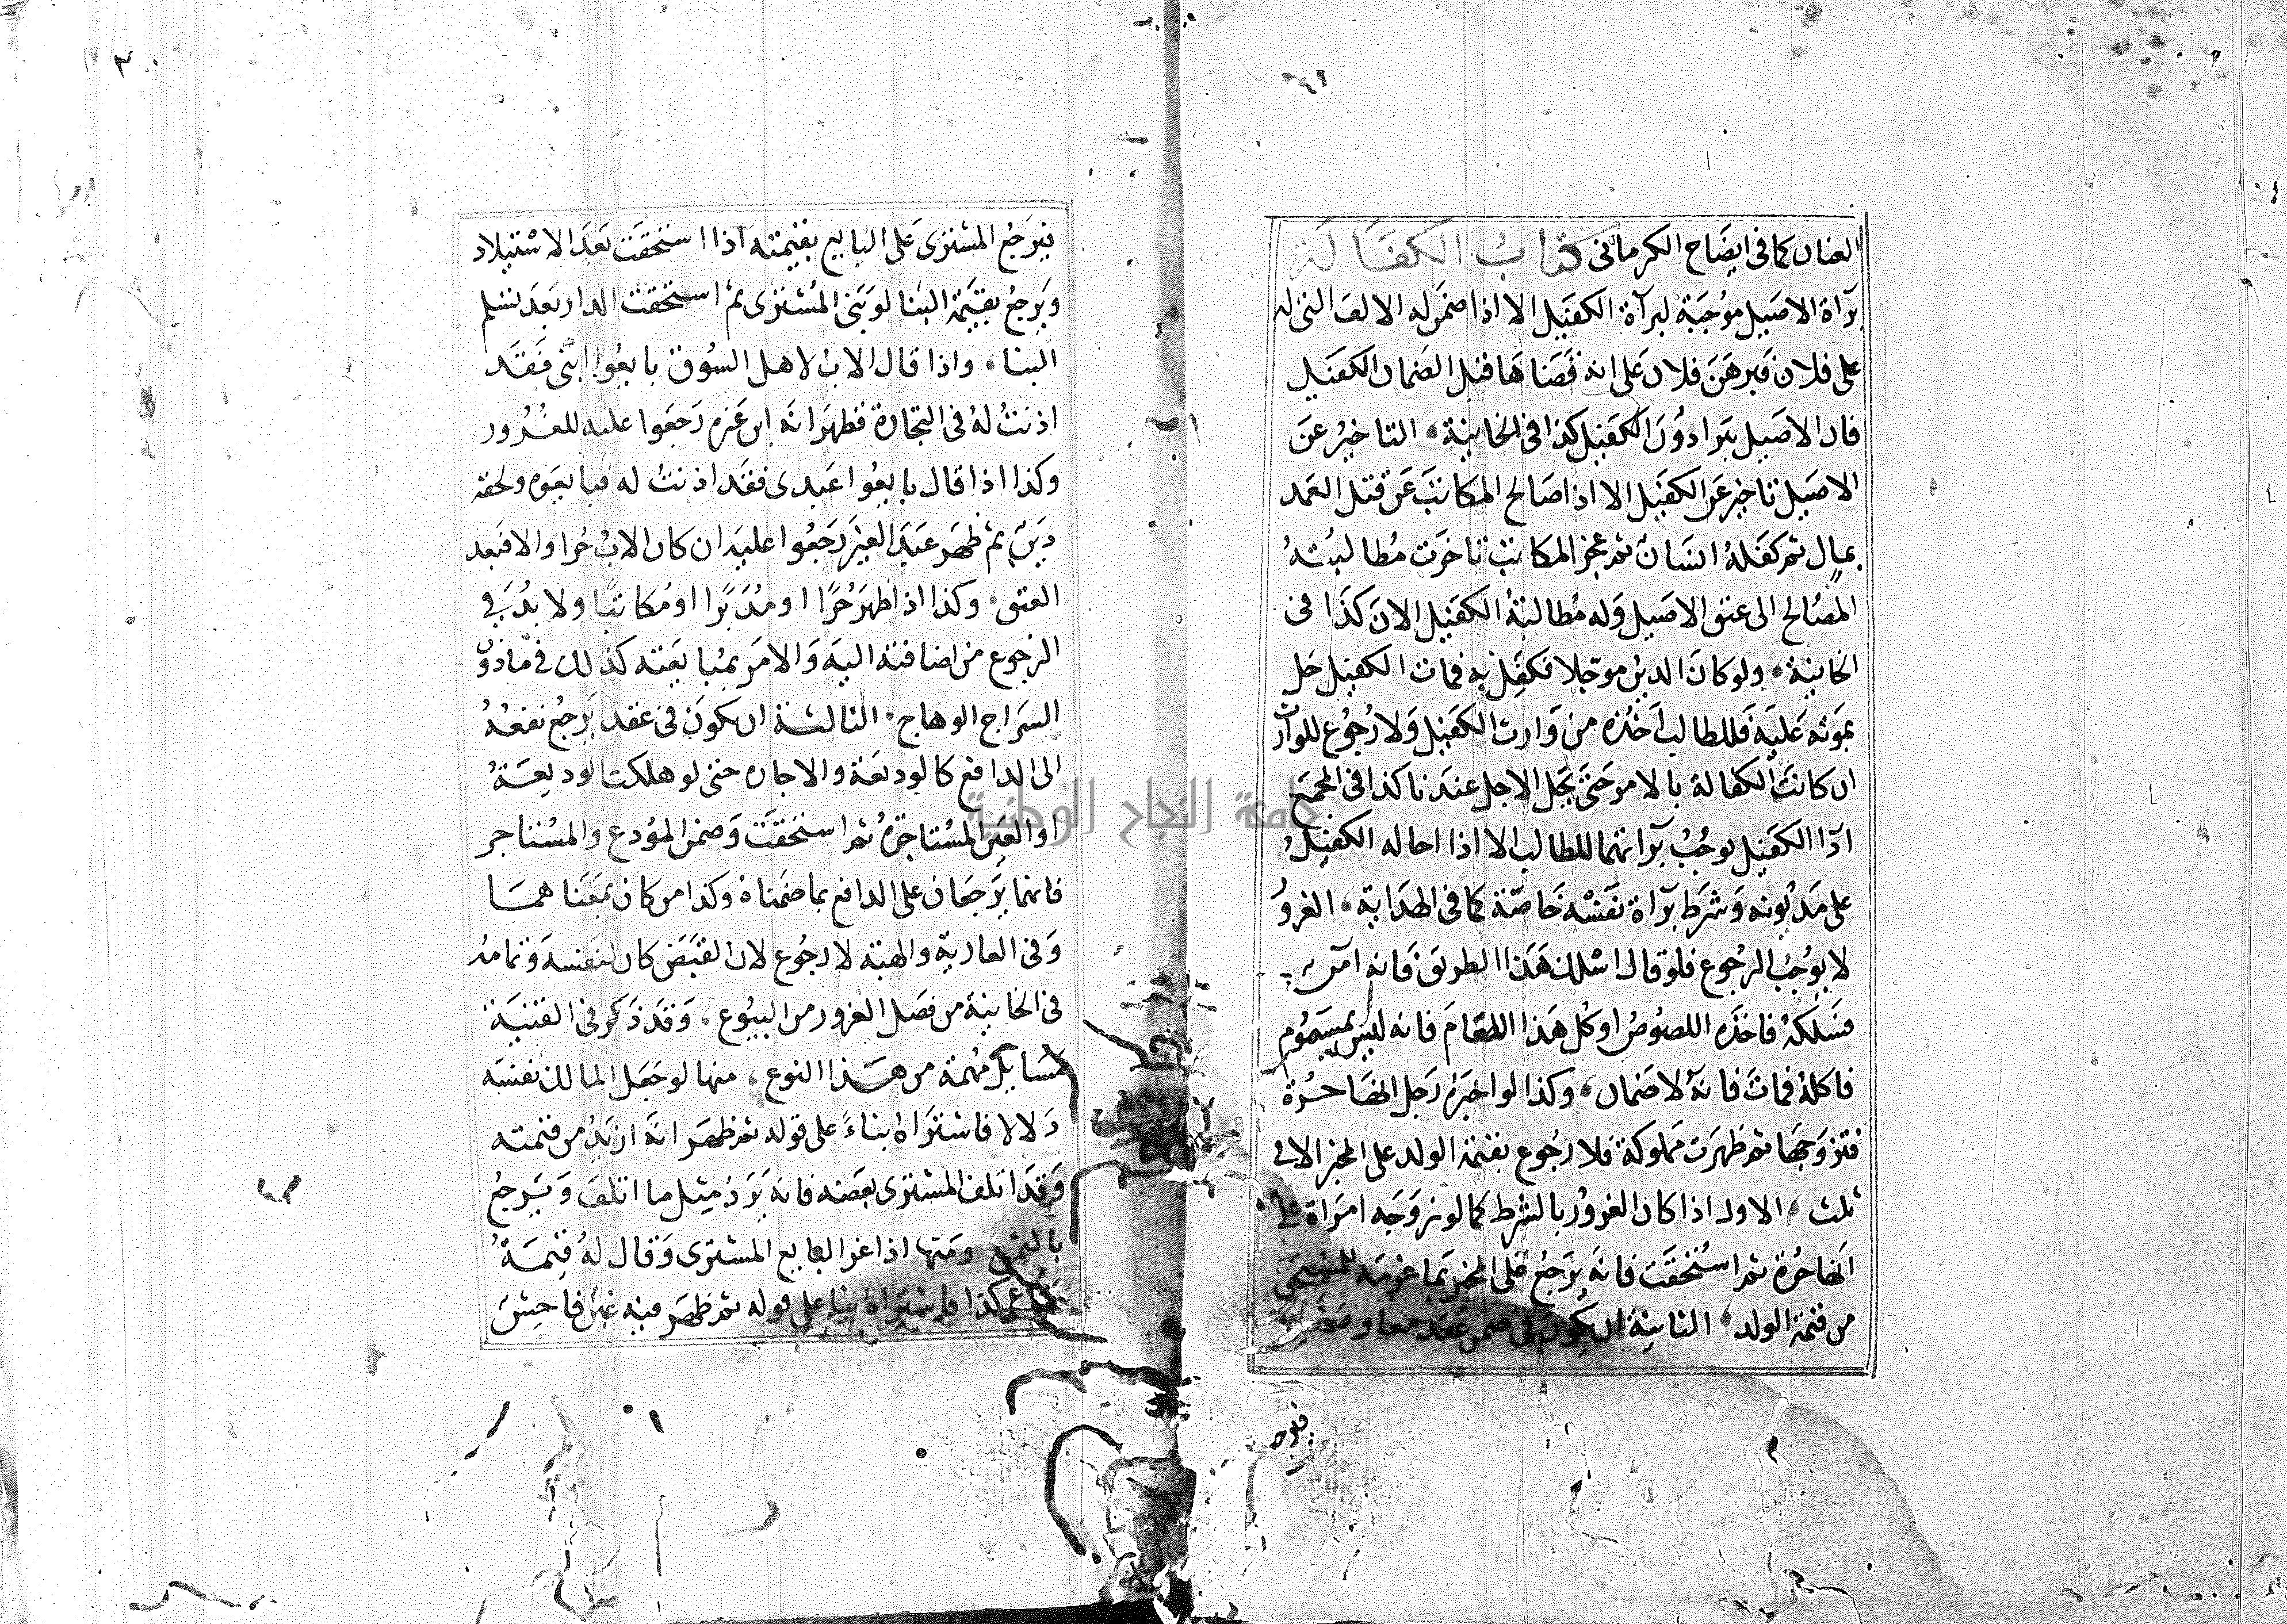 العنان كما فى ايضاح الكرمانى كتاب الكفالة
برآاة الاصيل موجبة لبرآة الكفيل الا اذا ضمن له الالف التى له
على فلان فبرهن فلان على انه قضاها قبل الضمان الكفيل
فان الاصيل يبرا دون الكفيل كذا فى الخانية التاخير عن
الاصيل تاخير عن الكفيل الا اذا صالح المكاتب عن قتل العمد
بمال ثم كفله انسان ثم عجز المكاتب تاخرت مطالبته
المصالح الى عتق الاصيل وله مطالبة الكفيل الان كذا فى
الخانية ولو كان الدين موجلا فكفل به فمات الكفيل حل
بموته عليه فللطالب اخذه من وارث الكفيل ولا رجوع للوارث
ان كانت الكفالة بالامر حتى يحل الاجل عندنا كذا فى المجمع
ادا الكفيل يوجب برآتهما للطالب الا اذا احاله الكفيل
على مديونه وشرط برآاة نفسه خاصة كما فى الهداية الغرور
لا يوجب الرجوع فلو قال اسلك هذا الطريق فانه آمن
فسلكه فاخذه اللصوص او كل هذا الطعام فانه ليس بمسموم
فاكله فمات فانه لا ضمان وكذا لو اخبره رجل انها حرة
فتزوجها ثم ظهرت مملوكة فلا رجوع بقيمة الولد على المخبر الا فى
ثلث الاولى اذا كان الغرور بالشرط كما لو زوجه امراة على
انها حرة ثم استحقت فانه يرجع على المخبر بما غرمه للمستحق
من قيمة الولد الثانية ان يكون فى ضمن عقد معاوضة
فيرجع
فيرجع المشترى على البايع بقيمته اذا استحقت بعد الاستيلاد
ويرجع بقيمة البنا لو بنى المشترى ثم استحقت الدار بعد تسلم
البنا واذا قال الاب لاهل السوق بايعوا ابنى فقد
اذنت له فى التجارة فظهر انه ابن غيره رجعوا عليه للغرور
وكذا اذا قال بايعوا عبدى فقد اذنت له فبايعوه ولحقه
دين ثم ظهر عبد الغير رجعوا عليه ان كان الاب حرا والا فبعد
العتق وكذا اذا ظهر حرا او مدبرا او مكاتبا ولا بد فى
الرجوع من اضافته اليه والامر بمبايعته كذلك فى ماذون
السراج الوهاج الثالثة ان يكون فى عقد يرجع نفعه
الى الدافع كالوديعة والاجاره حتى لو هلكت الوديعة
او العين المستاجرة ثم استحقت وضمن المودع والمستاجر
فانهما يرجعان على الدافع بما ضمناه وكذا من كان بمعناهما
وفى العارية والهبة لا رجوع لان القبض كان لنفسه وتمامه
فى الخانية من فصل الغرور من البيوع وقد ذكر فى القنية
مسايل مهمة من هذا النوع منها لو جعل المالك نفسه
دلالا فاشتراه بناء على قوله ثم ظهر انه ازيد من قيمته
وقد اتلف المشترى بعضه فانه يرد مثل ما اتلف ويرجع
بالثمن ومنها اذا غر البايع المشترى وقال له قيمة
متاعى كذا فاشتراه بناء على قوله ثم ظهر فيه غبن فاحش
جامعة النجاح الوطنية